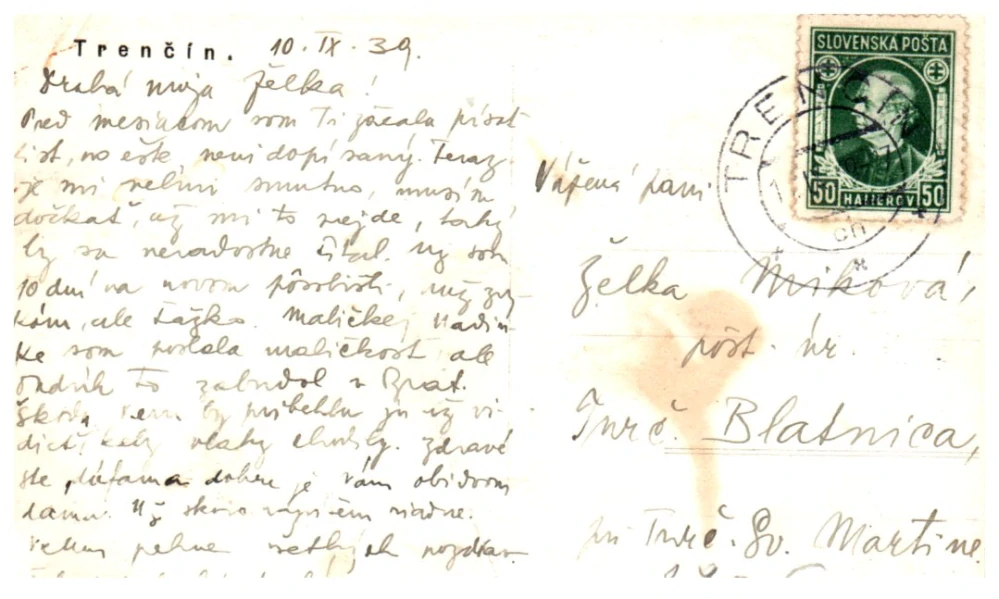 Trenčín. 10. IX. 39.
Drahá moja Želka!
Pred mesiacom som Ti začala písať
list, no ešte neni dopísaný. Teraz
je mi veľmi smutno, musím
dočkať, až mi to prejde, taký
by sa neradostne čítal. Už som
10 dní na novom pôsobišti,
kám, ale ťažko. Maličkej Nadin-
ke som poslala maličkosť, ale
Ondrík to zabudol v Brat.
Škoda, by pribehla ju už vi-
dieť, keby vlaky chodily. Zdravé
ste, dúfam a dobre je Vám obidvom
doma. Už skoro napíšem riadne.
Veľmi pekne všetkých pozdrav
SLOVENSKÁ POŠTA
50 HALIEROV 50
TRENČÍN
ch
Vážená pani
Želka Miková,
pošt. úr.
Turč. Blatnica,
pri Turč. Sv. Martine